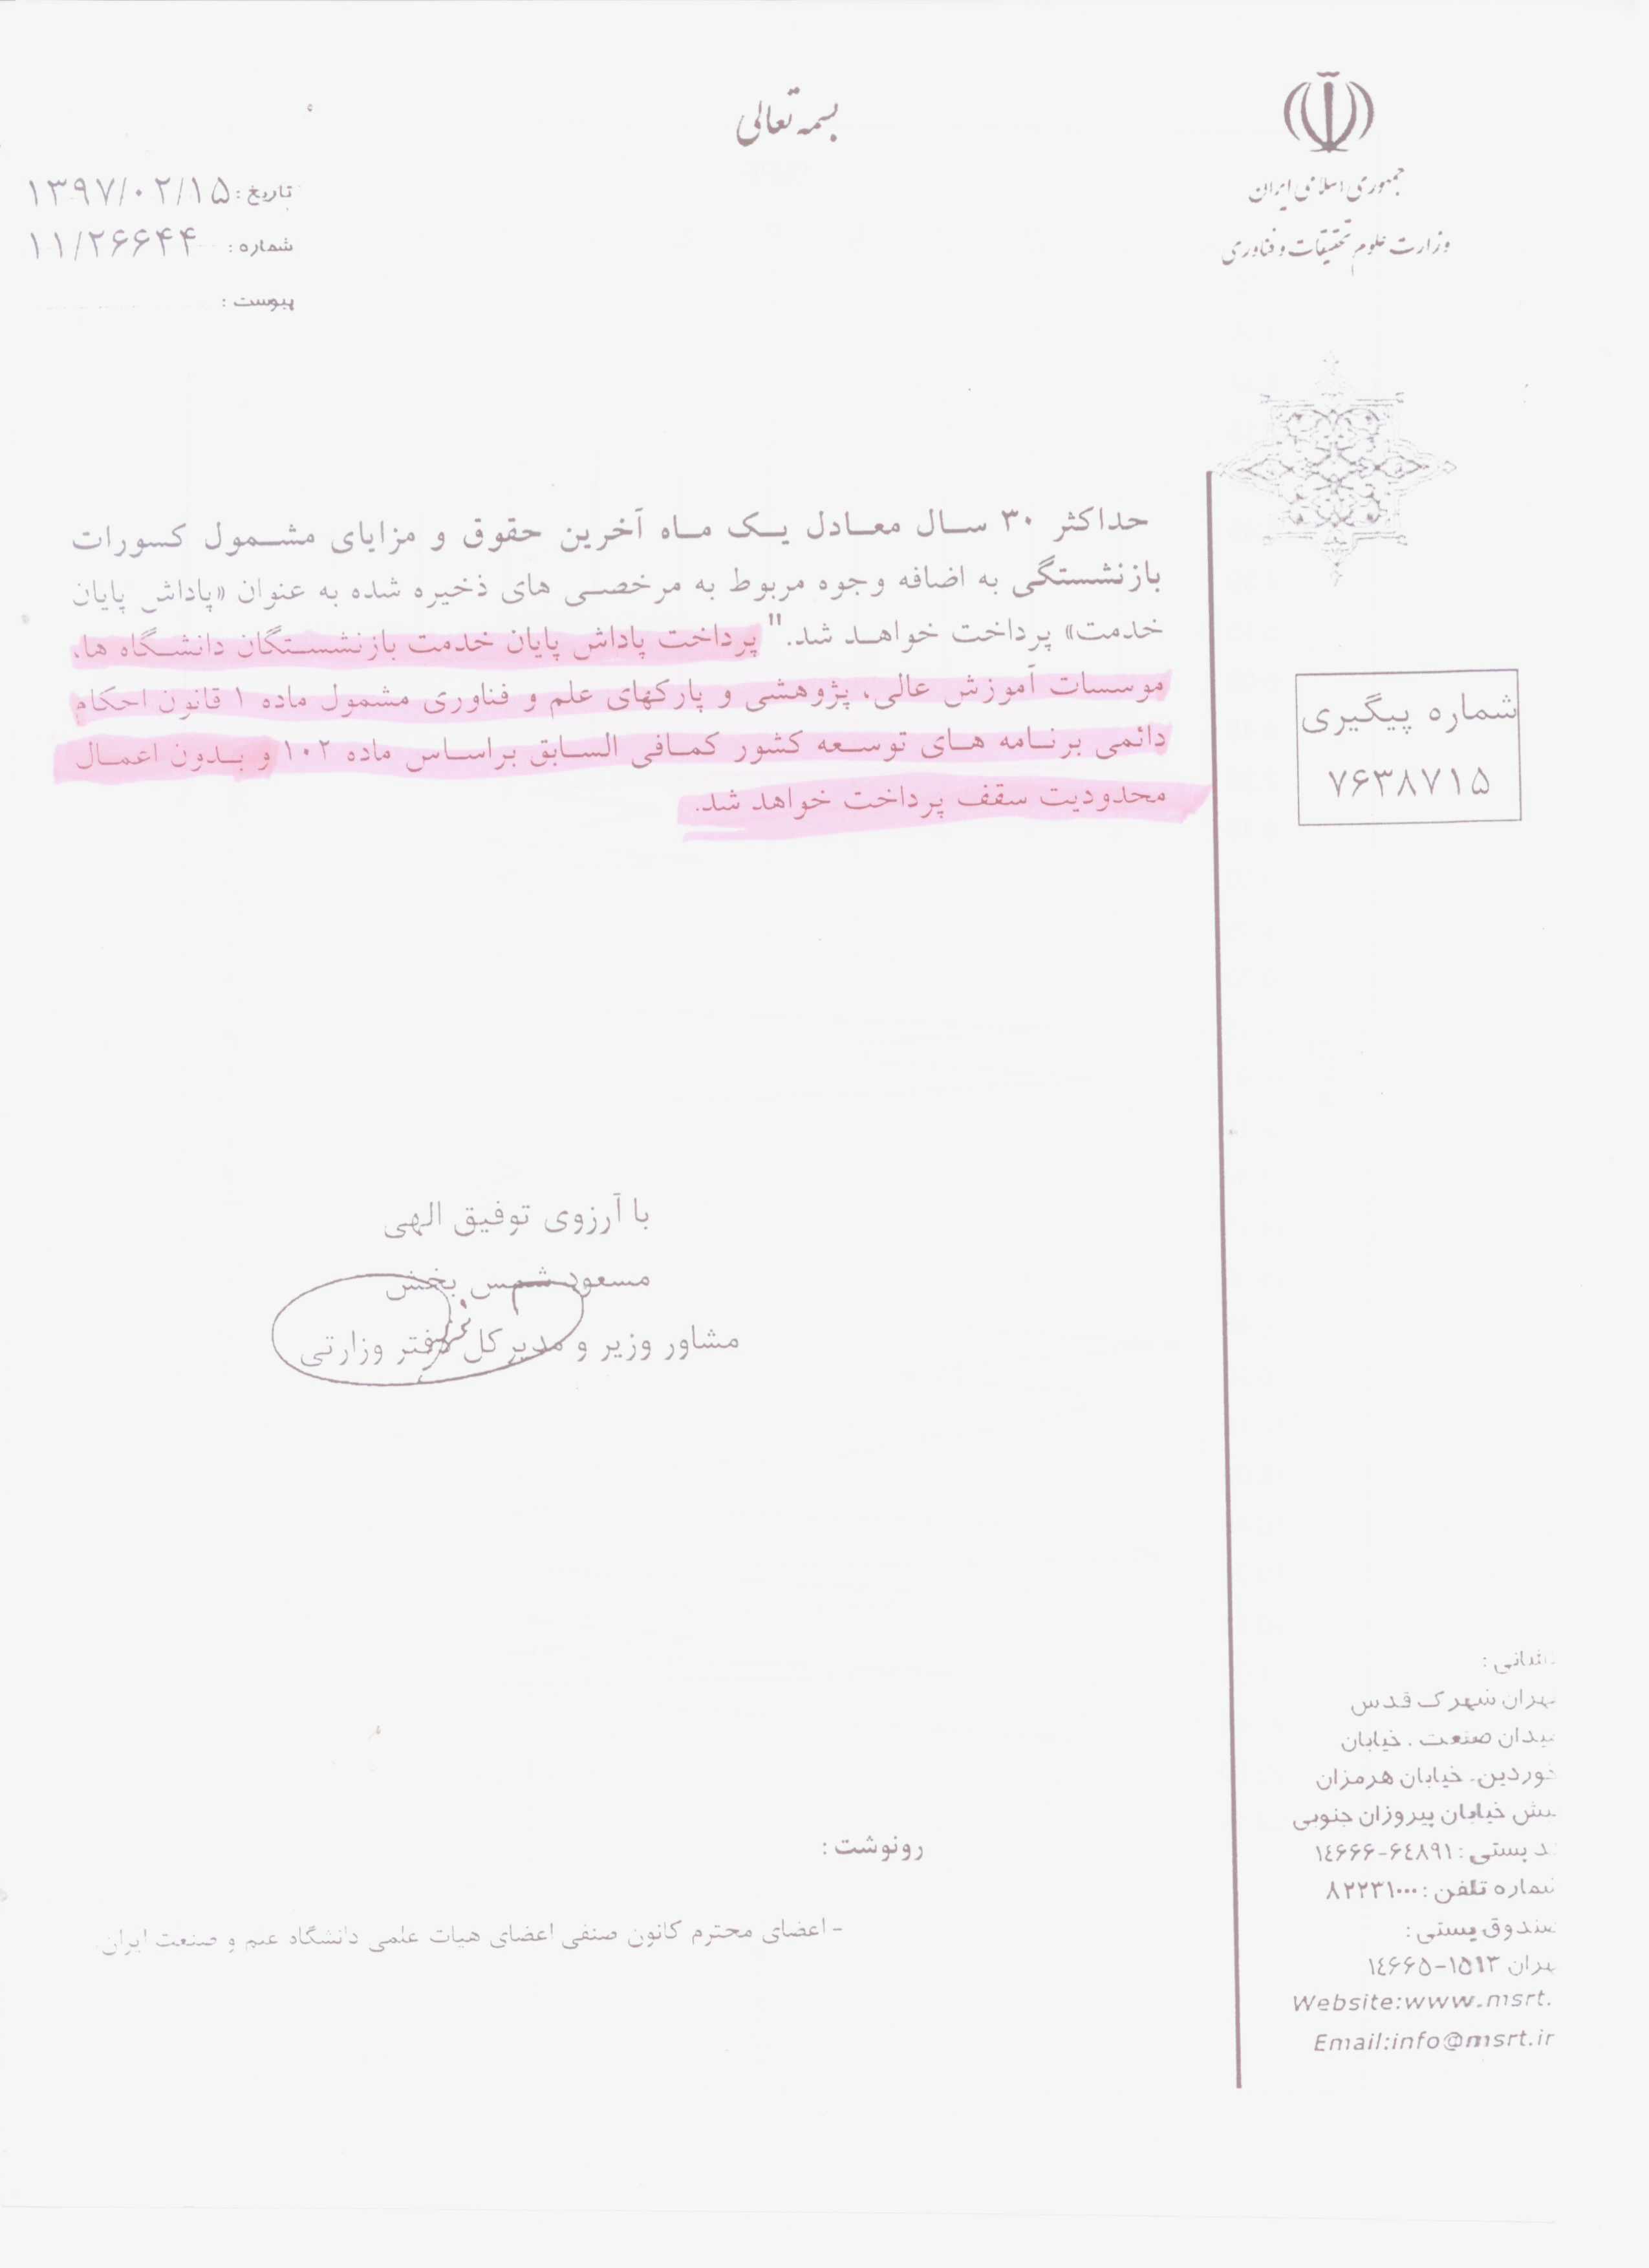 بسمه تعالی
جمهوری اسلامی ایران
وزارت علوم تحقیقات و فناوری
تاریخ : ۱۳۹۷/۰۲/۱۵
شماره : ۱۱/۲۶۶۴۴
پیوست :
حداکثر ۳۰ سال معادل یک ماه آخرین حقوق و مزایای مشمول کسورات
بازنشستگی به اضافه وجوه مربوط به مرخصی های ذخیره شده به عنوان «پاداش پایان
خدمت» پرداخت خواهد شد." پرداخت پاداش پایان خدمت بازنشستگان دانشگاه ها،
موسسات آموزش عالی، پژوهشی و پارکهای علم و فناوری مشمول ماده ۱ قانون احکام
دائمی برنامه های توسعه کشور کمافی السابق براساس ماده ۱۰۲ و بدون اعمال
محدودیت سقف پرداخت خواهد شد.
شماره پیگیری
۷۶۳۸۷۱۵
با آرزوی توفیق الهی
مسعود شمس بخش
مشاور وزیر و مدیرکل دفتر وزارتی
رونوشت :
- اعضای محترم کانون صنفی اعضای هیات علمی دانشگاه علم و صنعت ایران
نشانی :
تهران شهرک قدس
میدان صنعت . خیابان
خوردین. خیابان هرمزان
نبش خیابان پیروزان جنوبی
کد پستی : ۱٤۶۶۶-۶٤۸۹۱
شماره تلفن : ۸۲۲۳۱۰۰۰
صندوق پستی :
تهران ۱۵۱۳-۱٤۶۶۵
Website:www.msrt.
Email:info@msrt.ir